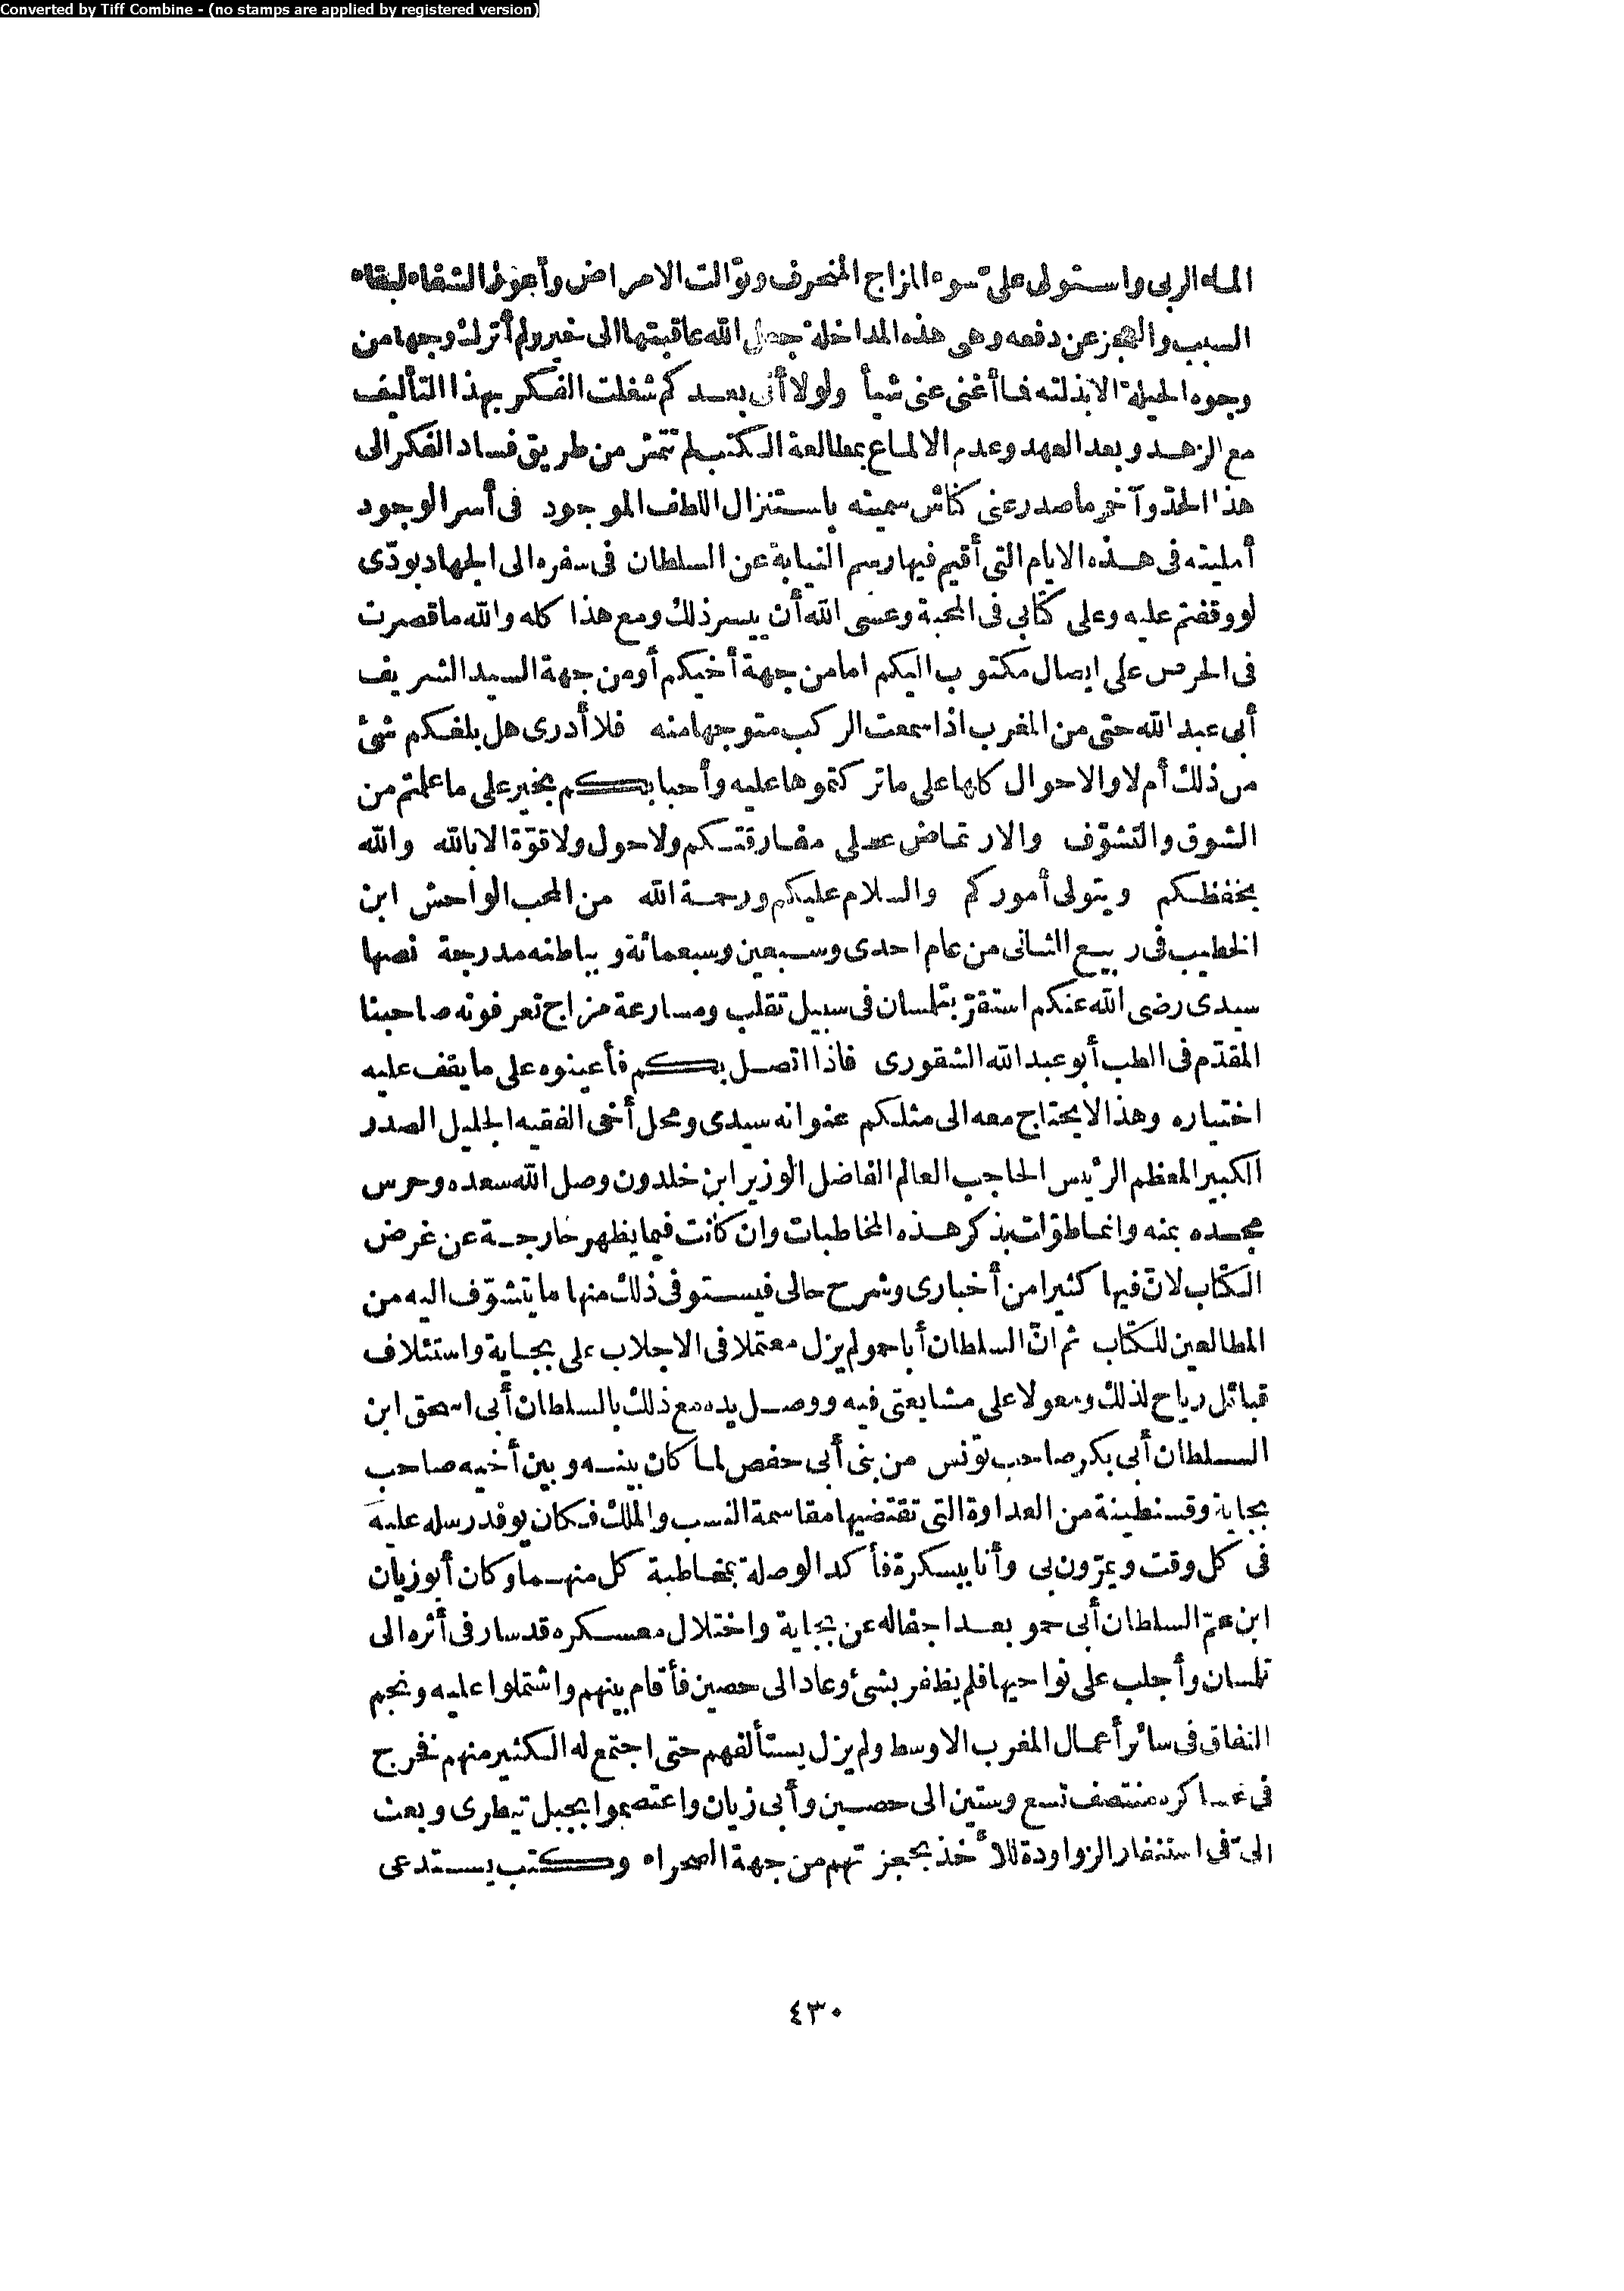 Converted by Tiff Combine - (no stamps are applied by registered version)
الماء الربى واستولى علىّ سوء المزاج المنحرف وتوّالت الامراض وأعوز الشفاء لبقاء
السبب والعجز عن دفعه وهى هذه المداخلة جعل الله عاقبتها الى خير ولم أترك وجها من
وجوه الحيلة الا بذلته فما أغنى عنى شيأ ولولا أنى بعدكم شغلت الفكر بهذا التأليف
مع الزهد وبعد العهد وعدم الالماع بمطالعة الكتب لم تتمش من طريق فساد الفكر الى
هذا الحدّ وآخر ما صدر عنى كناش سميته باستنزال اللطف الموجود فى أسر الوجود
أمليته فى هذه الايام التى أقيم فيها رسم النيابة عن السلطان فى سفره الى الجهاد بودّى
لو وقفتم عليه وعلى كتابى فى المحبة وعسى الله أن ييسر ذلك ومع هذا كله والله ما قصرت
فى الحرص على ايصال مكتوب اليكم اما من جهة أخيكم أو من جهة السيد الشريف
أبى عبد الله حتى من المغرب اذا سمعت الركب متوجها منه فلا أدرى هل بلغكم شئ
من ذلك أم لا والاحوال كلها على ما تركتموها عليه وأحبابكم بخير على ما علمتم من
الشوق والتشوّف والارتماض على مفارقتكم ولا حول ولا قوّة الا بالله والله
يحفظكم ويتولى أموركم والسلام عليكم ورحمة الله من المحب الواحش ابن
الخطيب فى ربيع الثانى من عام احدى وسبعين وسبعمائة وبباطنه مدرجة نصها
سيدى رضى الله عنكم استقرّ بتلمسان فى سبيل تقلب ومسارعة مزاج تعرفونه صاحبنا
المقدّم فى الطب أبو عبد الله الشقورى فاذا اتصل بكم فأعينوه على ما يقف عليه
اختياره وهذا لا يحتاج معه الى مثلكم عنوانه سيدى ومحل أخى الفقيه الجليل الصدر
الكبير المعظم الرئيس الحاجب العالم الفاضل الوزير ابن خلدون وصل الله سعده وحرس
مجده بمنه وانما طوّلت بذكر هذه المخاطبات وان كانت فيما يظهر خارجة عن غرض
الكتاب لانّ فيها كثيرا من أخبارى وشرح حالى فيستوفى ذلك منها ما يتشوّف اليه من
المطالعين للكتاب ثم انّ السلطان أبا حمو لم يزل معتملا فى الاجلاب على بجاية واستئلاف
قبائل رياح لذلك ومعولا على مشايعتى فيه ووصل يده مع ذلك بالسلطان أبى اسحق ابن
السلطان أبى بكر صاحب تونس من بنى أبى حفص لما كان بينه وبين أخيه صاحب
بجاية وقسنطينة من العداوة التى تقتضيها مقاسمة النسب والملك فكان يوفد رسله عليه
فى كل وقت ويمرّون بى وأنا ببسكرة فأكد الوصلة بمخاطبة كل منهما وكان أبو زيان
ابن عمّ السلطان أبى حمو بعد اجفاله عن بجاية واختلال معسكره قد سار فى أثره الى
تلمسان وأجلب على نواحيها فلم يظفر بشئ وعاد الى حصين فأقام بينهم واشتملوا عليه ونجم
النفاق فى سائر أعمال المغرب الاوسط ولم يزل يستألفهم حتى اجتمع له الكثير منهم فخرج
فى عساكره منتصف تسع وستين الى حصين وأبى زيان واعتصموا بجبل تيطرى وبعث
الىّ فى استنفار الزواودة للأخذ بحجزتهم من جهة الصحراء وكتب يستدعى
٤٣٠